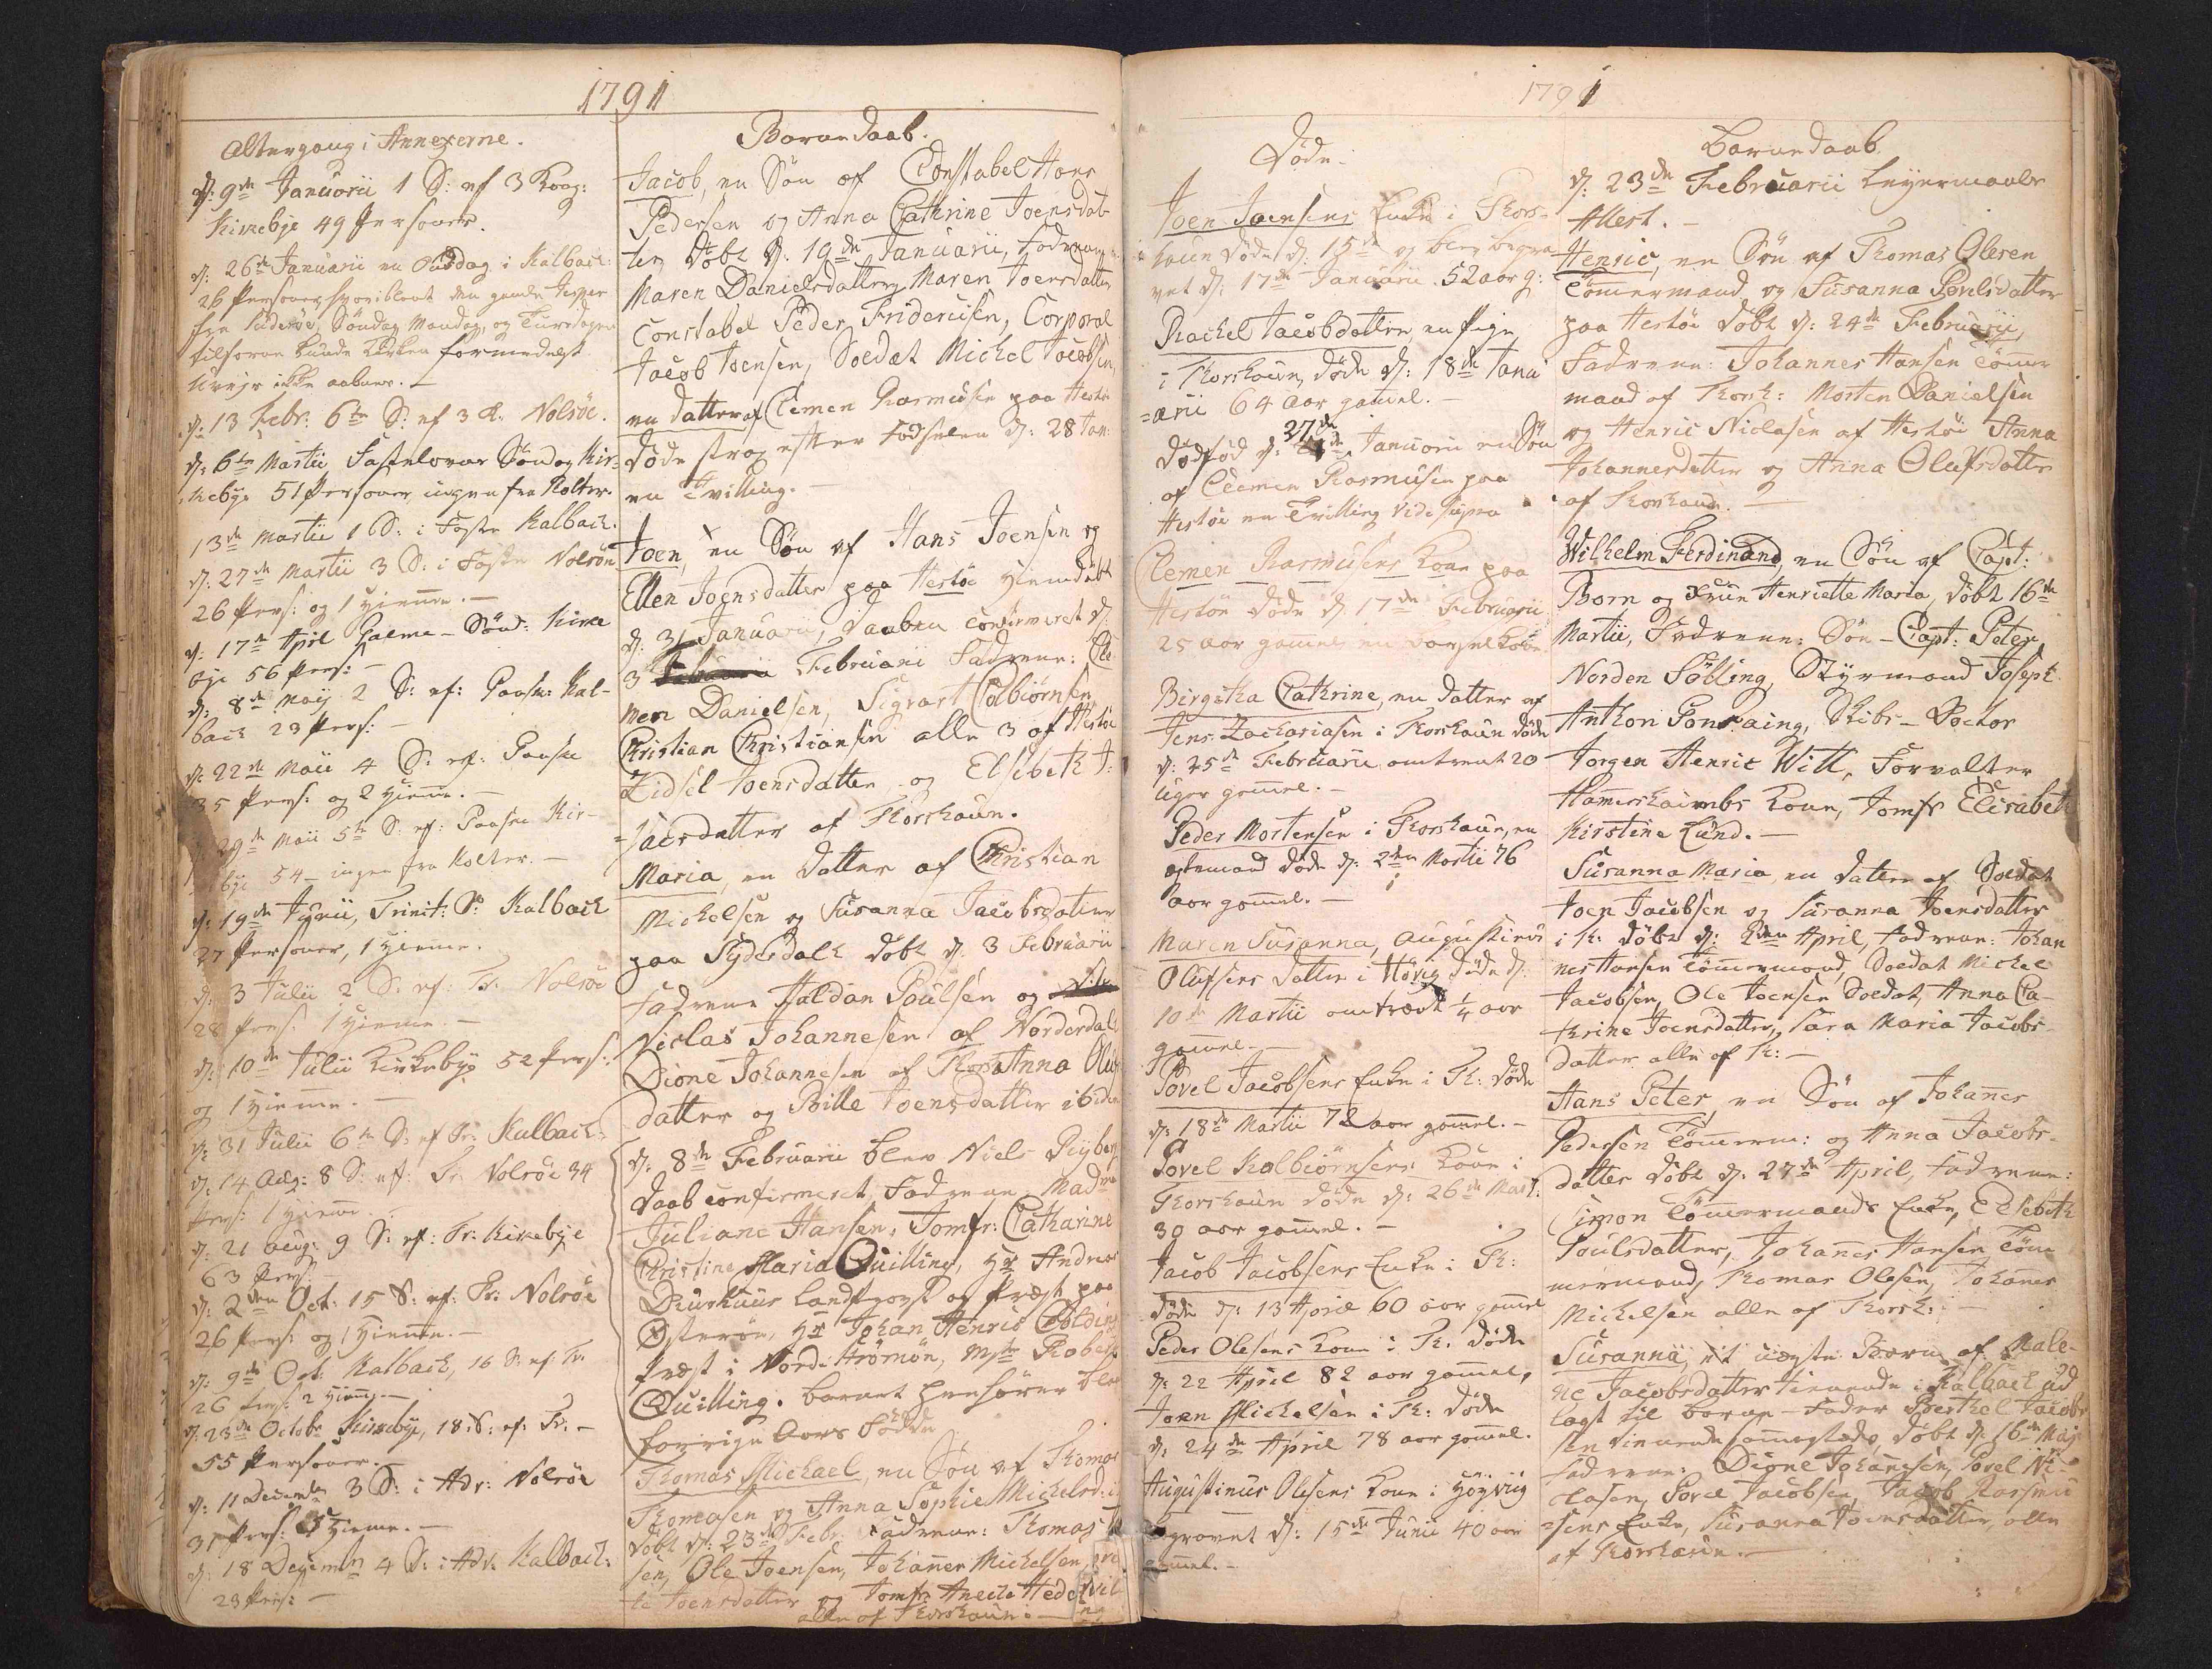 1791
Altergang i Annexerne.
d: 9de Januarii 1 S: ef 3 Kong:
Kirkebye 49 Personer.
d: 26de Januarii en Onsdag i Kalbach:
26 Personer hvoriblant den gamle Jesper
fra Suderöe, Söndag Mandag, og Tiirsdagen
tilforne kunde Kirken formedelst
ikke aabnes. —
d: 13 Febr: 6te S: ef 3 K. Nolsöe.
d: 6te Martii Fastelavns Söndag Kir-
kebye 51 Personer ingen fra Kolter.
13de Martii 1 S: i Faste Kalbach.
d: 27de Martii 3 S: i Faste Nolsöe
26 Pers: og 1 Hjemme. —
d: 17de April Palme-Sönd: Kirke
bye 56 Pers: —
d: 8de Maij 2 S: ef: Paaske Kal-
bach 23 Pers: —
d: 22de Maii 4 S: ef: Paaske
35 Pers: og 2 Hjemme. —
29de Maii 5te S: ef: Paaske Kir-
bye 54 — ingen fra Kolter. —
d: 19de Junii, Trinit: S: Kalbach
27 Personer, 1 Hjemme.
d: 3 Julii 2 S: ef: Tr: Nolsöe
28 Pers: 1 Hjemme. —
d: 10de Julii Kirkebye 52 Pers:
og 1 Hjemme. —
d: 31 Julii 6te S: ef Tr: Kalbach:
d: 14 Aug: 8 S: ef: Tr Nolsöe 34
Pers: 1 Hjemme.
d: 21 Aug: 9 S: ef: Tr: Kirkebye
63 Pers: —
d: 2den Oct: 15 S: ef: Tr: Nolsöe
26 Pers: og 1 Hjemme. —
d: 9de Oct: Kalbach, 16 S: ef: Tr.
26 Pers: 2 Hjem: —
d: 23de Octobr Kirkebye, 18: S: ef: Tr: —
55 Personer. —
d: 11 Decembr 3 S: i Adv: Nolsöe
31 Pers: 3 Hjemme. —
d: 18 Decembr 4 S: i Adv: Kalbach:
23 Pers: —
Barnedaab.
Jacob, en Sön af Constabel Hans
Pedersen og Anna Cathrine Joensdat-
ter, döbt d: 19de Januarii, Fadderne
Maren Danielsdatter, Maren Joensdatter
Constabel Peder Friderichsen, Corporal
Jacob Joensen, Soldat Michel Jacobsen,
en datter af Clemen Rasmusen paa Hestöe
döde strax efter Födselen d: 28 Jan:
en Tvilling. —
Joen, en Sön af Hans Joensen og
Ellen Joensdatter paa Hestöe Hiemdöbt
d: 31 Januarii, Daaben confirmeret d:
3 Februarii Fadderne: Cle-
men Danielsen, Sigvart Colbiörnsen
Christian Christiansen alle 3 af Hestöe
Zidsel Joensdatter og Elsebeth J:
sacsdatter af Thorshaun.
Maria, en datter af Christian
Michelsen og Susanna Jacobsdatter
paa Syderdalh döbt d: 3 Februarii
Fadderne Haldan Poulsen og
Niclas Johannesen af Norderdalh
Dione Johannesen af Thors: Anna Olufs
datter og Bille Joensdatter ibidem
d: 8de Februarii blev Niels Ryberg
Daab confirmeret, Fadderne Madme
Juliane Hansen, Jomfr: Catharine
Christine Maria Quilling, Hr Andreas
Druskuus Landprovst og Præst paa
Österöe, Hr Johan Henric Colding
Præst i Nord-Strömöe, Mstr Robert
Quilling. barnet henhörer blant
forrige Aars Födde
Thomas Michael, en Sön af Thomas
Thomasen og Anna Sophie Michelsd:
döbt d: 23de Febr: Fadderne: Thomas
sen, Ole Joensen, Johannes Michelsen,
te Joensdatter og Jomfr Anecte Hedevil
alle af Thorshaun. —
1791
Döde.
Joen Joensens Enke i Thors-
haun döde d: 15de og blev begra-
vet d: 17de Januarii 52 aar g:
Rachel Jacobdatter, en Pige
i Thorshaun, döde d: 18de Janu
=arii 64 aar gamel. —
Dödföd d: 27de Januarii en Sön
af Clemen Rasmusen paa
Hestöe en Tvilling vide supra
Clemen Rasmusens Kone paa
Hestöe döde d: 17de Februarii
25 aar gamel, en Barselkone
Birgitha Cathrine, en datter af
Jens Zachariasen i Thorshaun döde
d: 25de Februarii omtrent 20
uger gamel. —
Peder Mortensen i Thorshaun, en
ægtemand döde d: 2den Martii 76
aar gamel. —
Maren Susanna, Augustinus
Olufsens datter i Hövig döde d:
10de Martii omtrent 1/4 aar
gamel. —
Povel Jacobsens Enke i Th: döde
d: 18de Martii 72 aar gamel. —
Povel Kolbiörnsens Kone i
Thorshaun döde d: 26de Mart:
30 aar gamel. —
Jacob Jacobsens Enke i Th:
döde d: 13 April 60 aar gamel
Peder Olesens Kone i Th: döde
d: 22 April 82 aar gamel,
Joen Michelsen i Th: döde
d: 24de April 78 aar gamel.
Augustinus Olesens Kone i Höyvig
begravet d: 15de Junii 40 aar
gamel. —
Barnedaab
d: 23de Februarii Leyermaals
Attest. —
Henric, en Sön af Thomas Olesen
Tömermand og Susanna Povelsdatter
paa Hestöe döbt d: 24de Februarii,
Fadderne: Johannes Hansen Tömer
mand af Thorsh: Morten Danielsen
og Henric Niclasen af Hestöe Anna
Johannesdatter og Anna Olufsdatter
af Thorshaun. —
Wilhelm Ferdinand, en Sön af Capt:
Born og Frue Henriette Maria, döbt 16de
Martii, Fadderne: Söe-Capt: Peter
Norden Sölling, Styrmand Joseph
Anthon Ponsaing, Skibs-Doctor
Jorgen Henric Witt, Forvalter
Hamershaimbs Kone, Jomfr Elisabeth
Kirstine Lund. —
Susanna Maria, en datter af Soldat
Joen Jacobsen og Susanna Joensdatter
i Th: döbt d: 2den April, Fadderne: Johan
nes Hansen Tömermand, Soldat Michel
Jacobsen, Ole Joensen Soldat, Anna Ca-
thrine Joensdatter, Sara Maria Jacobs-
datter alle af Th: —
Hans Peter, en Sön af Johanes
Pedersen Tömerm: og Anna Jacobs-
datter döbt d: 27de April, Fadderne:
Simon Tömermands Enke, Elsebeth
Poulsdatter, Johanes Hansen Töm
mermand, Thomas Olesen, Johanes
Michelsen alle af Thorsh: —
Susanna, et uægte Barn af Male-
ne Jacobsdatter tienende i Kalbach ud
lagt til barne-Fader Berthel Jacob
sen tienende samestæds, döbt d: 16de Maji
Fadderne: Dione Johanesen, Povel Ni-
clasen, Povel Jacobsen, Jacob Rasmu
=sens Enke, Susanna Joensdatter, alle
af Thorshaun. —